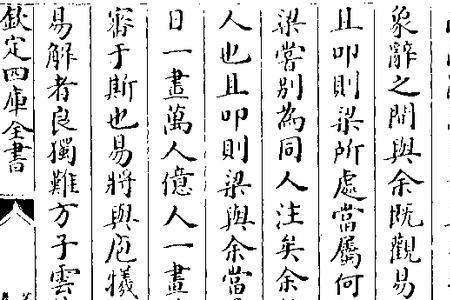 象辭之間與余既觀易
且叩則梁所處當屬何
梁嘗别為同人注矣余
人也且叩則梁與余當
日一畫萬人億人一畫
審于斯也易將與庖犧
易解者良獨難方子雲
欽定四庫全書